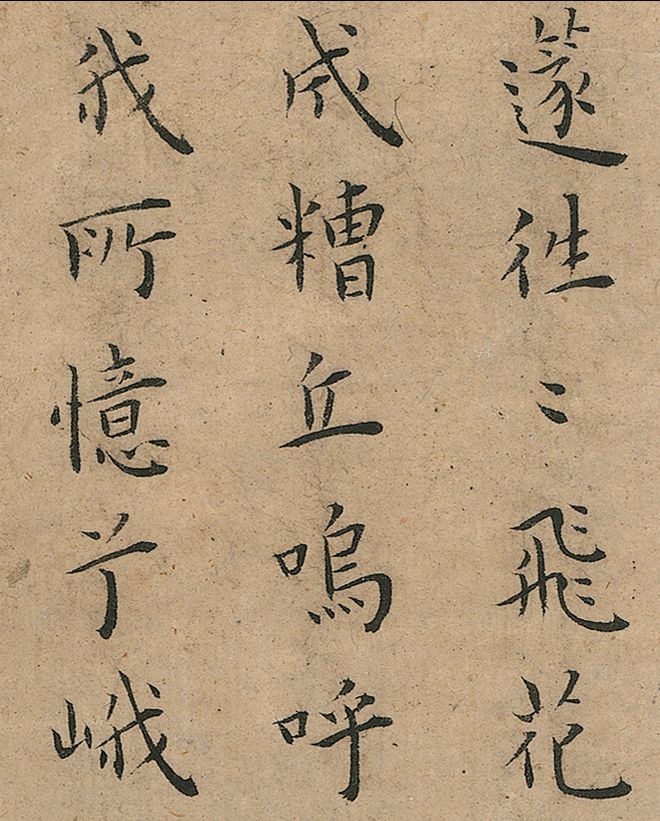 篴徃〻飛花
成糟丘嗚呼
我所憶兮峨